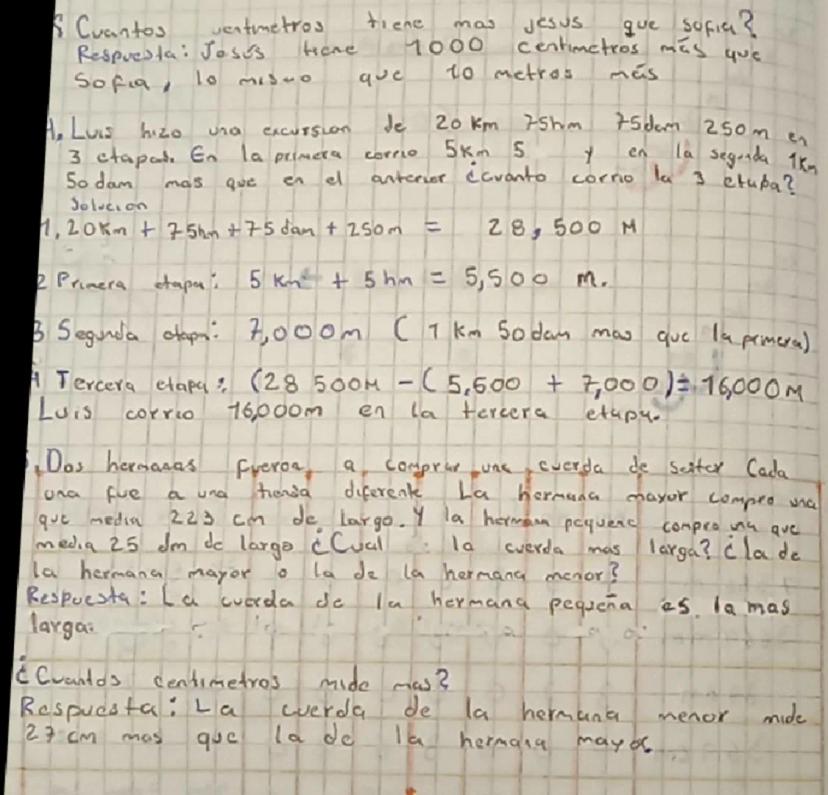 ¿Cuantos centimetros tiene mas Jesus que sofia?
Respuesta: Josés tiene 1000 centimetros más que
Sofia, lo mismo que 10 metros más
4. Luis hizo una excursion de 20 Km 75hm 75dam 250m en
3 etapas. En la primera corrio 5Km 5 y en la segunda 1Km
50 dam mas que en el anterior ¿cuanto corrio la 3 etapa?
Solucion
1. 20Km + 75hm + 75 dam + 250m = 28,500 M
2 Primera etapa: 5 Km + 5 hm = 5,500 m.
3 Segunda etapa: 7,000m (1 Km 50dam mas que la primera)
4 Tercera etapa: (28 500M - (5,500 + 7,000) = 16,000M
Luis corrio 16,000m en la tercera etapa.
Dos hermanas fueron a comprar una cuerda de Cada
una fue a una tienda diferente La hermana mayor compro una
que media 223 cm de largo. Y la hermana pequeña compro una que
media 25 dm de largo ¿Cual la cuerda mas larga? ¿la de
la hermana mayor o la de la hermana menor?
Respuesta: La cuerda de la hermana pequeña es la mas
larga.
¿Cuantos centimetros mide mas?
Respuesta: La cuerda de la hermana menor mide
27 cm mas que la de la hermana mayor